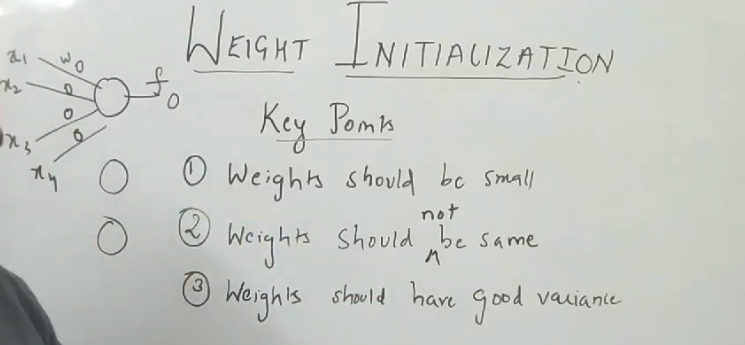 WEIGHT INITIALIZATION
x1 w0
x2 0
0
x3 0
x4
f
0
Key Points
① Weights should be small
② Weights should not be same
③ Weights should have good variance